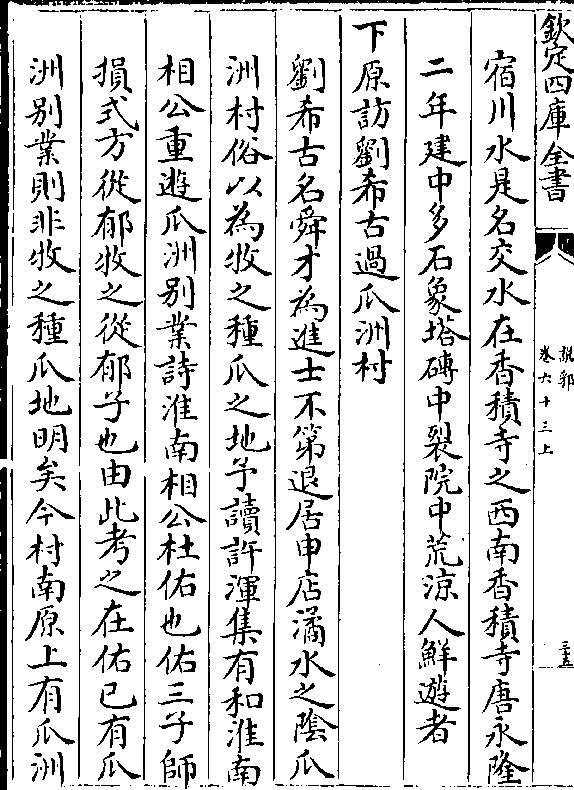 欽定四庫全書
說郛
卷六十三上
三五
宿川水是名交水在香積寺之西南香積寺唐永隆
二年建中多石象塔磚中裂院中荒涼人鮮遊者
下原訪劉希古過瓜洲村
劉希古名舜才為進士不第退居申店潏水之隂瓜
洲村俗以為牧之種瓜之地予讀許渾集有和淮南
相公重遊瓜洲别業詩淮南相公杜佑也佑三子師
損式方從郁牧之從郁子也由此考之在佑已有瓜
洲别業則非牧之種瓜地明矣今村南原上有瓜洲